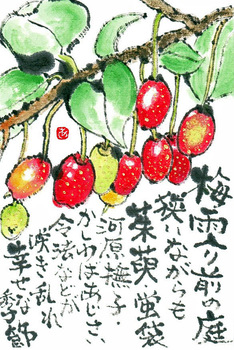 梅雨入り前の庭
狭いながらも
茱萸・蛍袋
河原撫子・
かしわばあじさい
令法などが
咲き乱れ
幸せな季節
あ